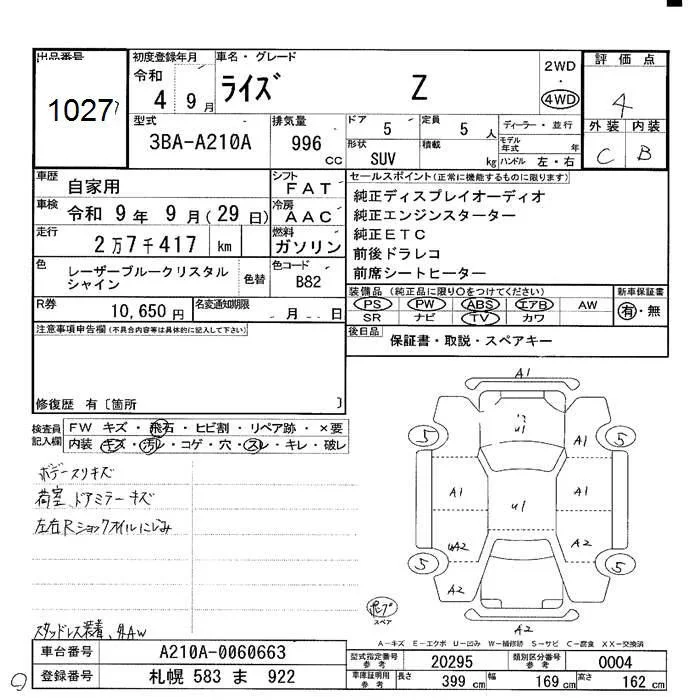 出品番号
1027
初度登録年月
令和
4 9月
車名・グレード
ライズ Z
2WD
・
4WD
評価点
4
外装 内装
C B
型式
3BA-A210A
排気量
996
cc
ドア
5
定員
5 人
形状
SUV
積載
kg
ディーラー・並行
モデル年式 年
ハンドル 左・右
車歴
自家用
シフト
FAT
車検
令和 9年 9月(29日)
冷房
AAC
走行
2万7千417 km
燃料
ガソリン
色
レーザーブルークリスタル
シャイン
色替
色コード
B82
R券
10,650円
名変通知期限
月 日
セールスポイント(正常に機能するものに限ります)
純正ディスプレイオーディオ
純正エンジンスターター
純正ETC
前後ドラレコ
前席シートヒーター
装備品(純正品に限り○をつけてください)
PS PW ABS エアB AW
SR ナビ TV カワ
新車保証書
有・無
後日品
保証書・取説・スペアキー
注意事項申告欄(不具合内容等は具体的に記入して下さい)
修復歴 有〔箇所 〕
検査員
記入欄
FW キズ・飛石・ヒビ割・リペア跡・×要
内装 キズ・汚レ・コゲ・穴・スレ・キレ・破レ
ボデースリキズ
荷室、ドアミラーキズ
左右Rショックオイルにじみ
スタッドレス装着、外AW
A1
U1
5
5
A1
A1
U1
UA2
A2
A2
5
5
スペア
A2
A-キズ E-エクボ U-凹み W-補修跡 S-サビ C-腐食 XX-交換済
車台番号
A210A-0060663
登録番号
札幌 583 ま 922
型式指定番号
参考
20295
類別区分番号
参考
0004
車庫証明用
参考
長さ
399 cm
幅
169 cm
高さ
162 cm